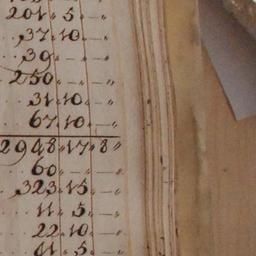 201 " 5 " — "
37 " 10 " — "
30 " — " — "
250 " — " — "
31 " 10 " — "
67 " 10 " — "
2948 " 17 " 8 "
60 " — " — "
323 " 15 " — "
11 " 5 " — "
22 " 10 " — "
61 " 5 " — "